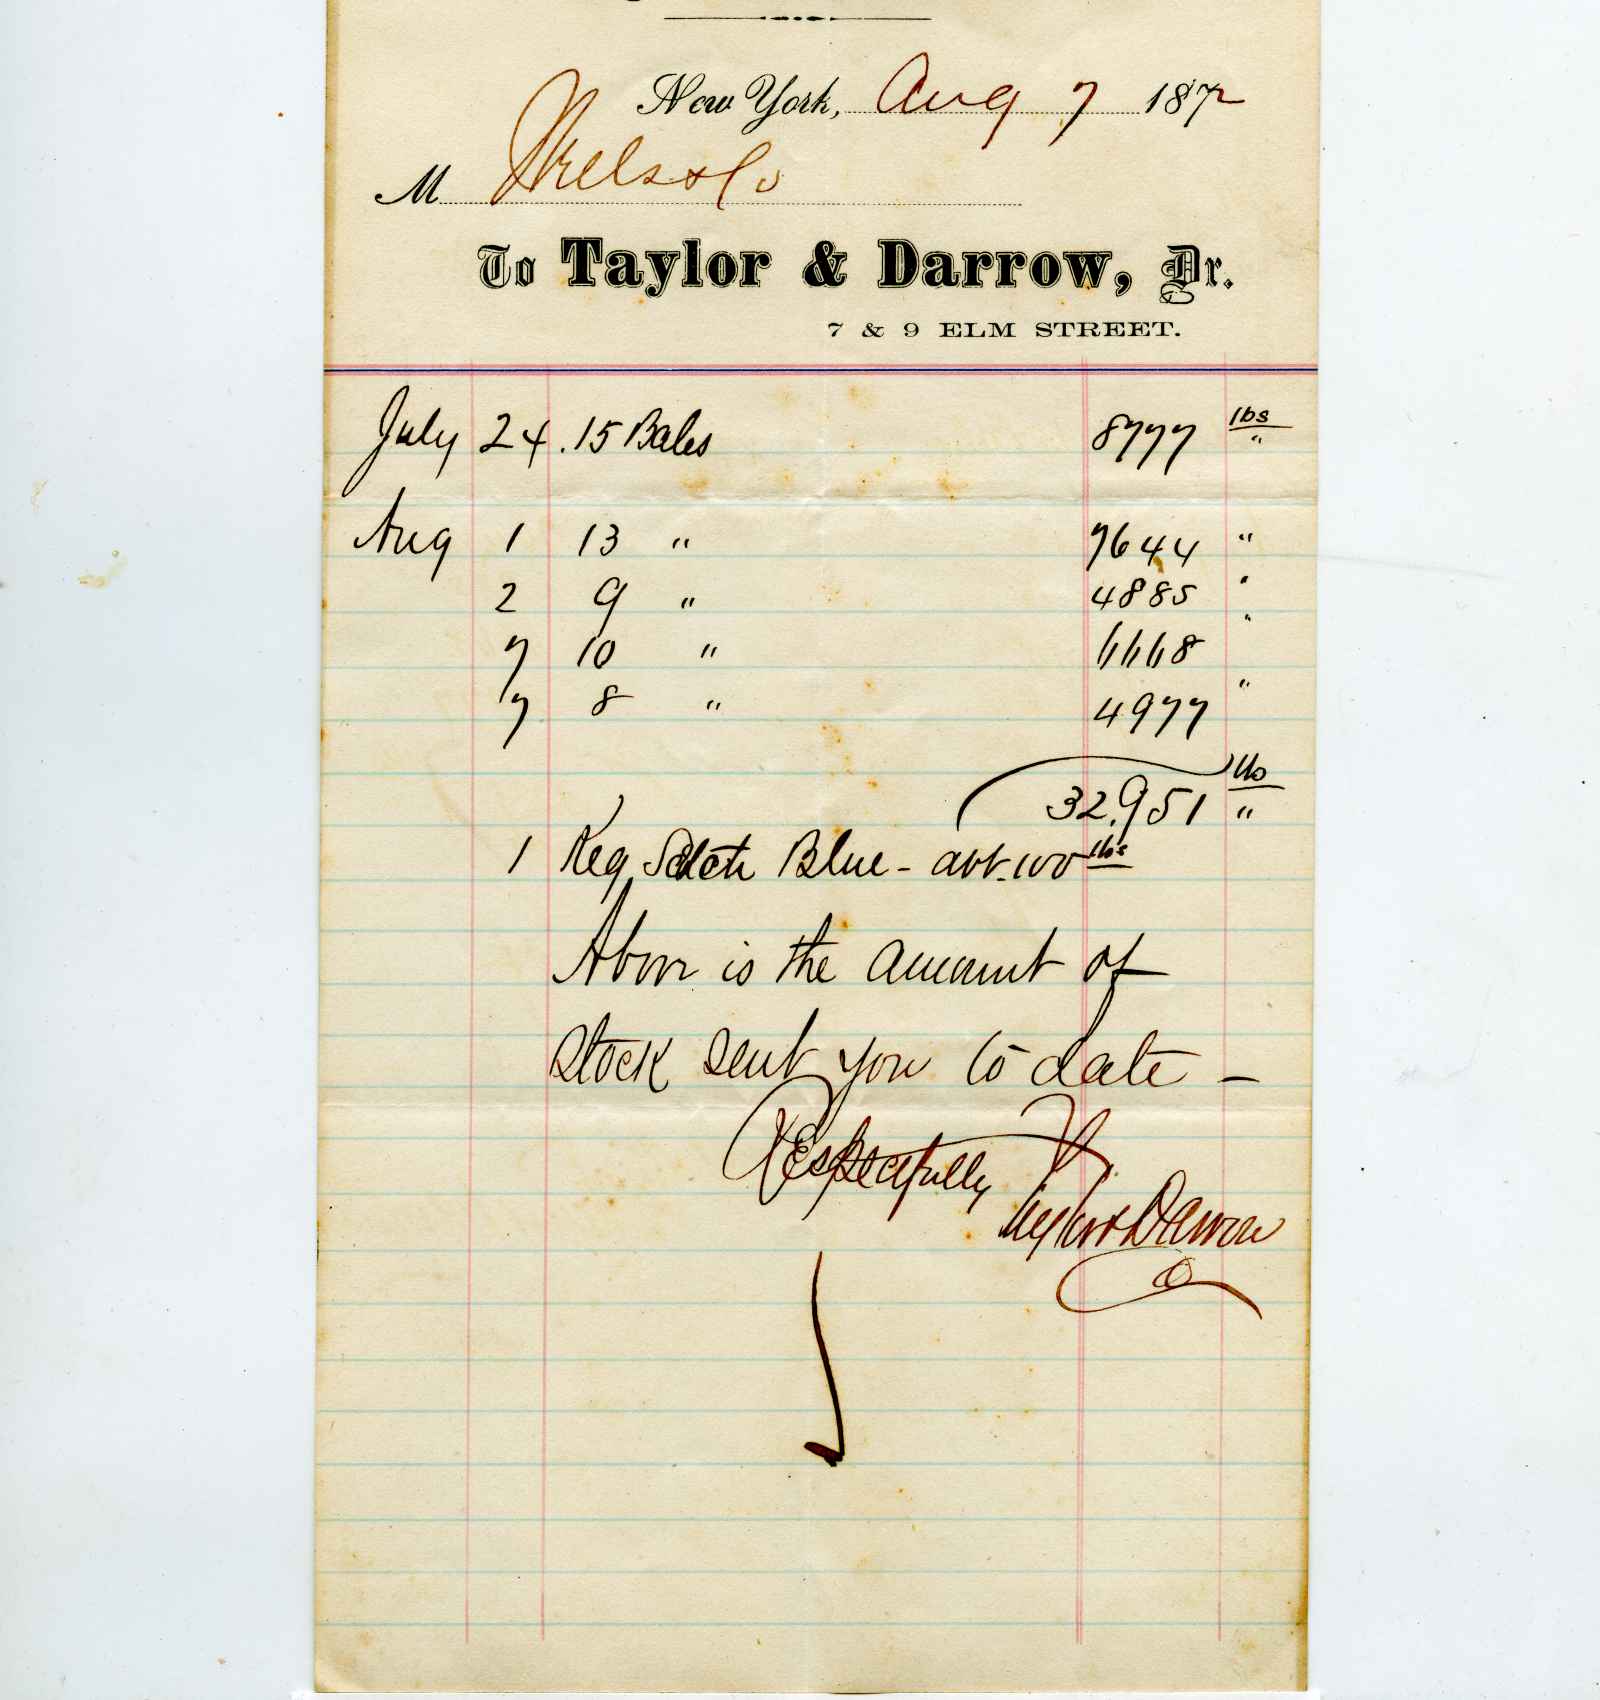 New York, Aug 7 1872
M & Co
To Taylor & Darrow, Dr.
7 & 9 ELM STREET.
July 24. 15 Bales 8777 lbs "
Aug 1 13 " 7644 "
2 9 " 4885 "
7 10 " 6668 "
7 8 " 4977 "
32,951 lbs "
1 Keg Blue - abt. 100 lbs
Above is the amount of
stock sent you to date -
Respectfully
Taylor & Darrow